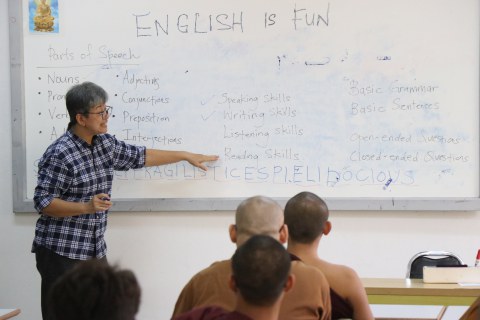 ENGLISH is FUN
Parts of Speech
• Nouns
• Pron
• Ver
• A
• Adjectives
• Conjunctions
• Preposition
• Interjections
✓ Speaking Skills
✓ Writing Skills
Listening Skills
Reading Skills
Basic Grammar
Basic Sentences
Open-ended Questions
Closed-ended Questions
ERAGILISTICESPIELIDOCIOUS